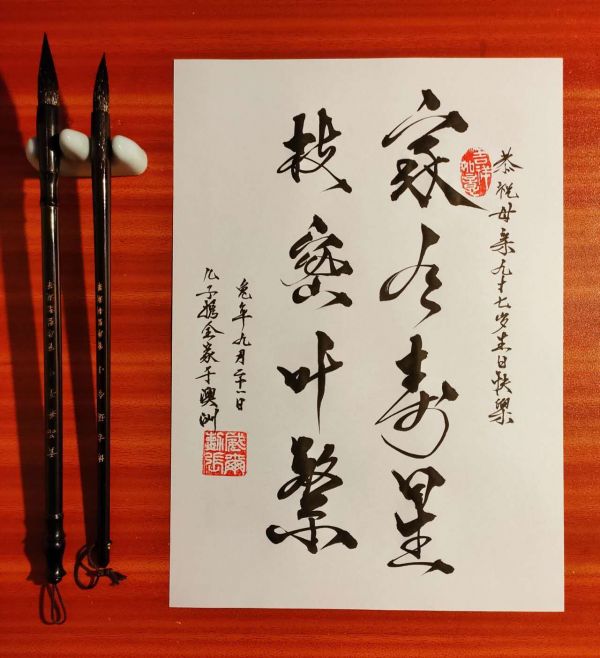 恭祝母亲九十七岁生日快樂
吉祥如意
家有寿星
枝密叶繁
兔年九月二十一日
儿子携全家于澳洲